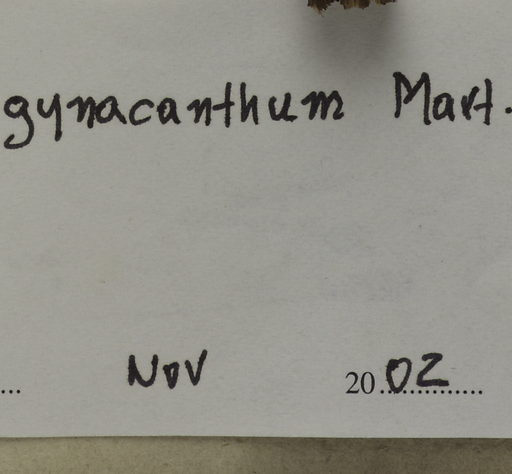 gynacanthum Mart.
... Nov 20 02